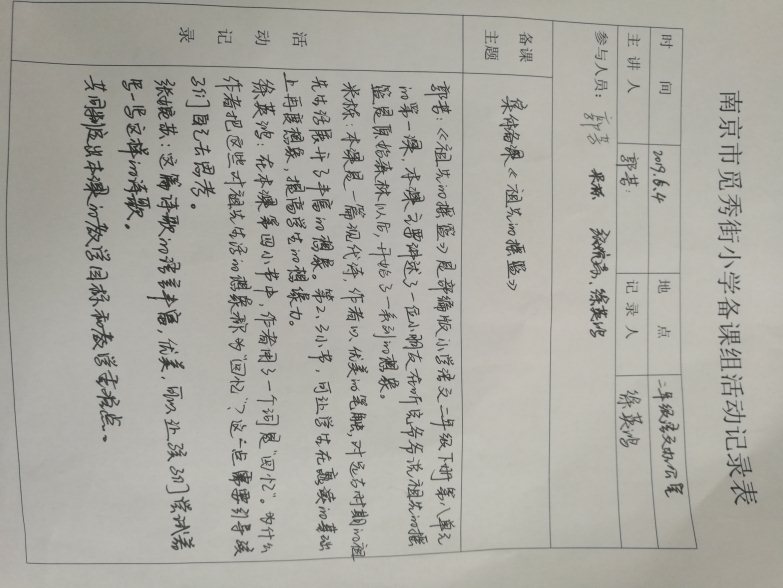 南京市觅秀街小学备课组活动记录表
时间 2019.6.4 地点 二年级语文办公室
主讲人 郭荟 记录人 徐英鸿
参与人员：郭荟 徐英鸿
备课主题 集体备课《祖先的摇篮》
活动记录
郭荟：《祖先的摇篮》是部编版小学语文二年级下册第八单元
的第一课，本课主要讲述了一位小朋友在听完爷爷说祖先的摇
篮是原始森林以后，开始了一系列的想象。
本课是一篇现代诗，作者以优美的笔触，对远古时期的祖
先生活展开了丰富的想象。第2、3小节，可让学生在朗读的基础
上再度想象，提高学生的想象力。
徐英鸿：在本课第四小节中，作者用了一个词是“回忆”。为什么
作者把这些对祖先生活的想象称为“回忆”？这一点需要引导孩
子们自己去思考。
这篇诗歌的语言丰富，优美，可以让孩子们尝试着
写一写这样的诗歌。
共同制定出本课的教学目标和教学重难点。